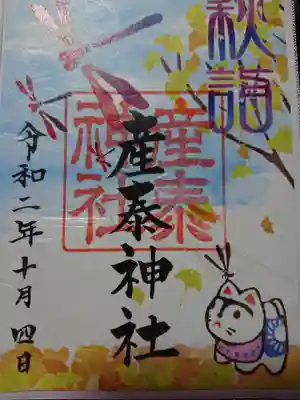 秋詣
産泰神社
産泰神社
令和二年十月四日